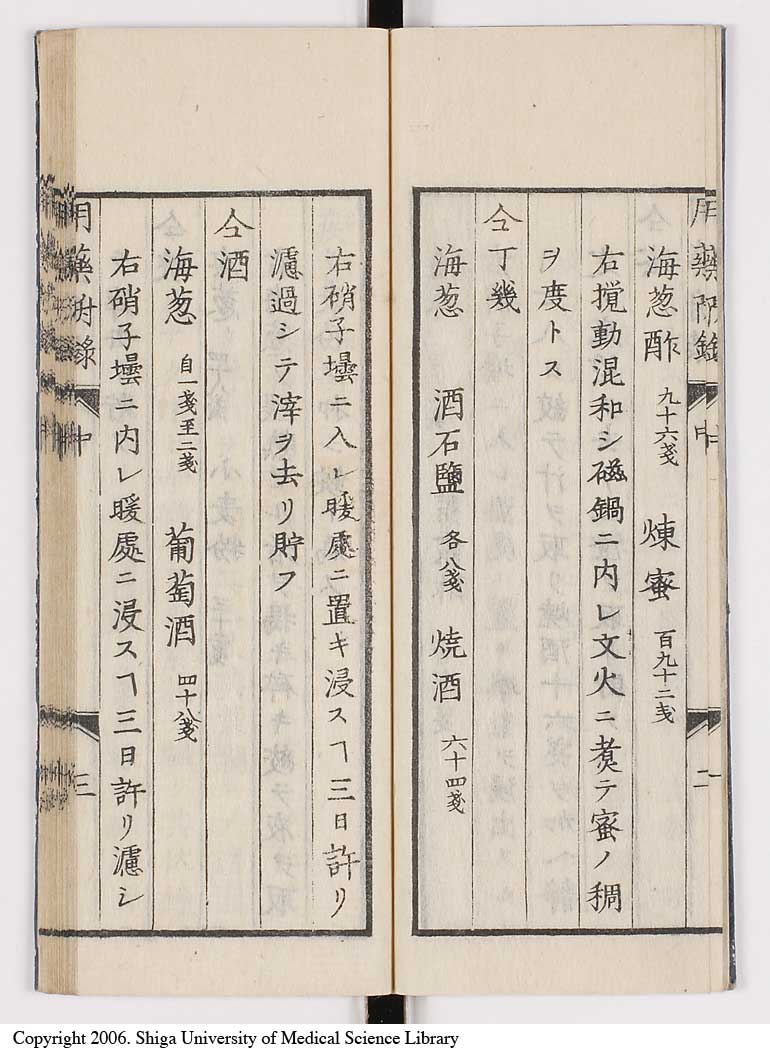 用藥附錄 中 二
海葱酢 九十六戔 煉蜜 百九十二戔
右攪動混和シ磁鍋ニ内レ文火ニ煑テ蜜ノ稠
ヲ度トス
仝丁幾
海葱 酒石鹽 各八戔 焼酒 六十四戔
右硝子壜ニ入レ暖處ニ置キ浸スヿ三日許リ
濾過シテ滓ヲ去リ貯フ
仝酒
海葱 自一戔至二戔 葡萄酒 四十八戔
右硝子壜ニ内レ暖處ニ浸スヿ三日許リ濾シ
用藥附錄 中 三
Copyright 2006. Shiga University of Medical Science Library